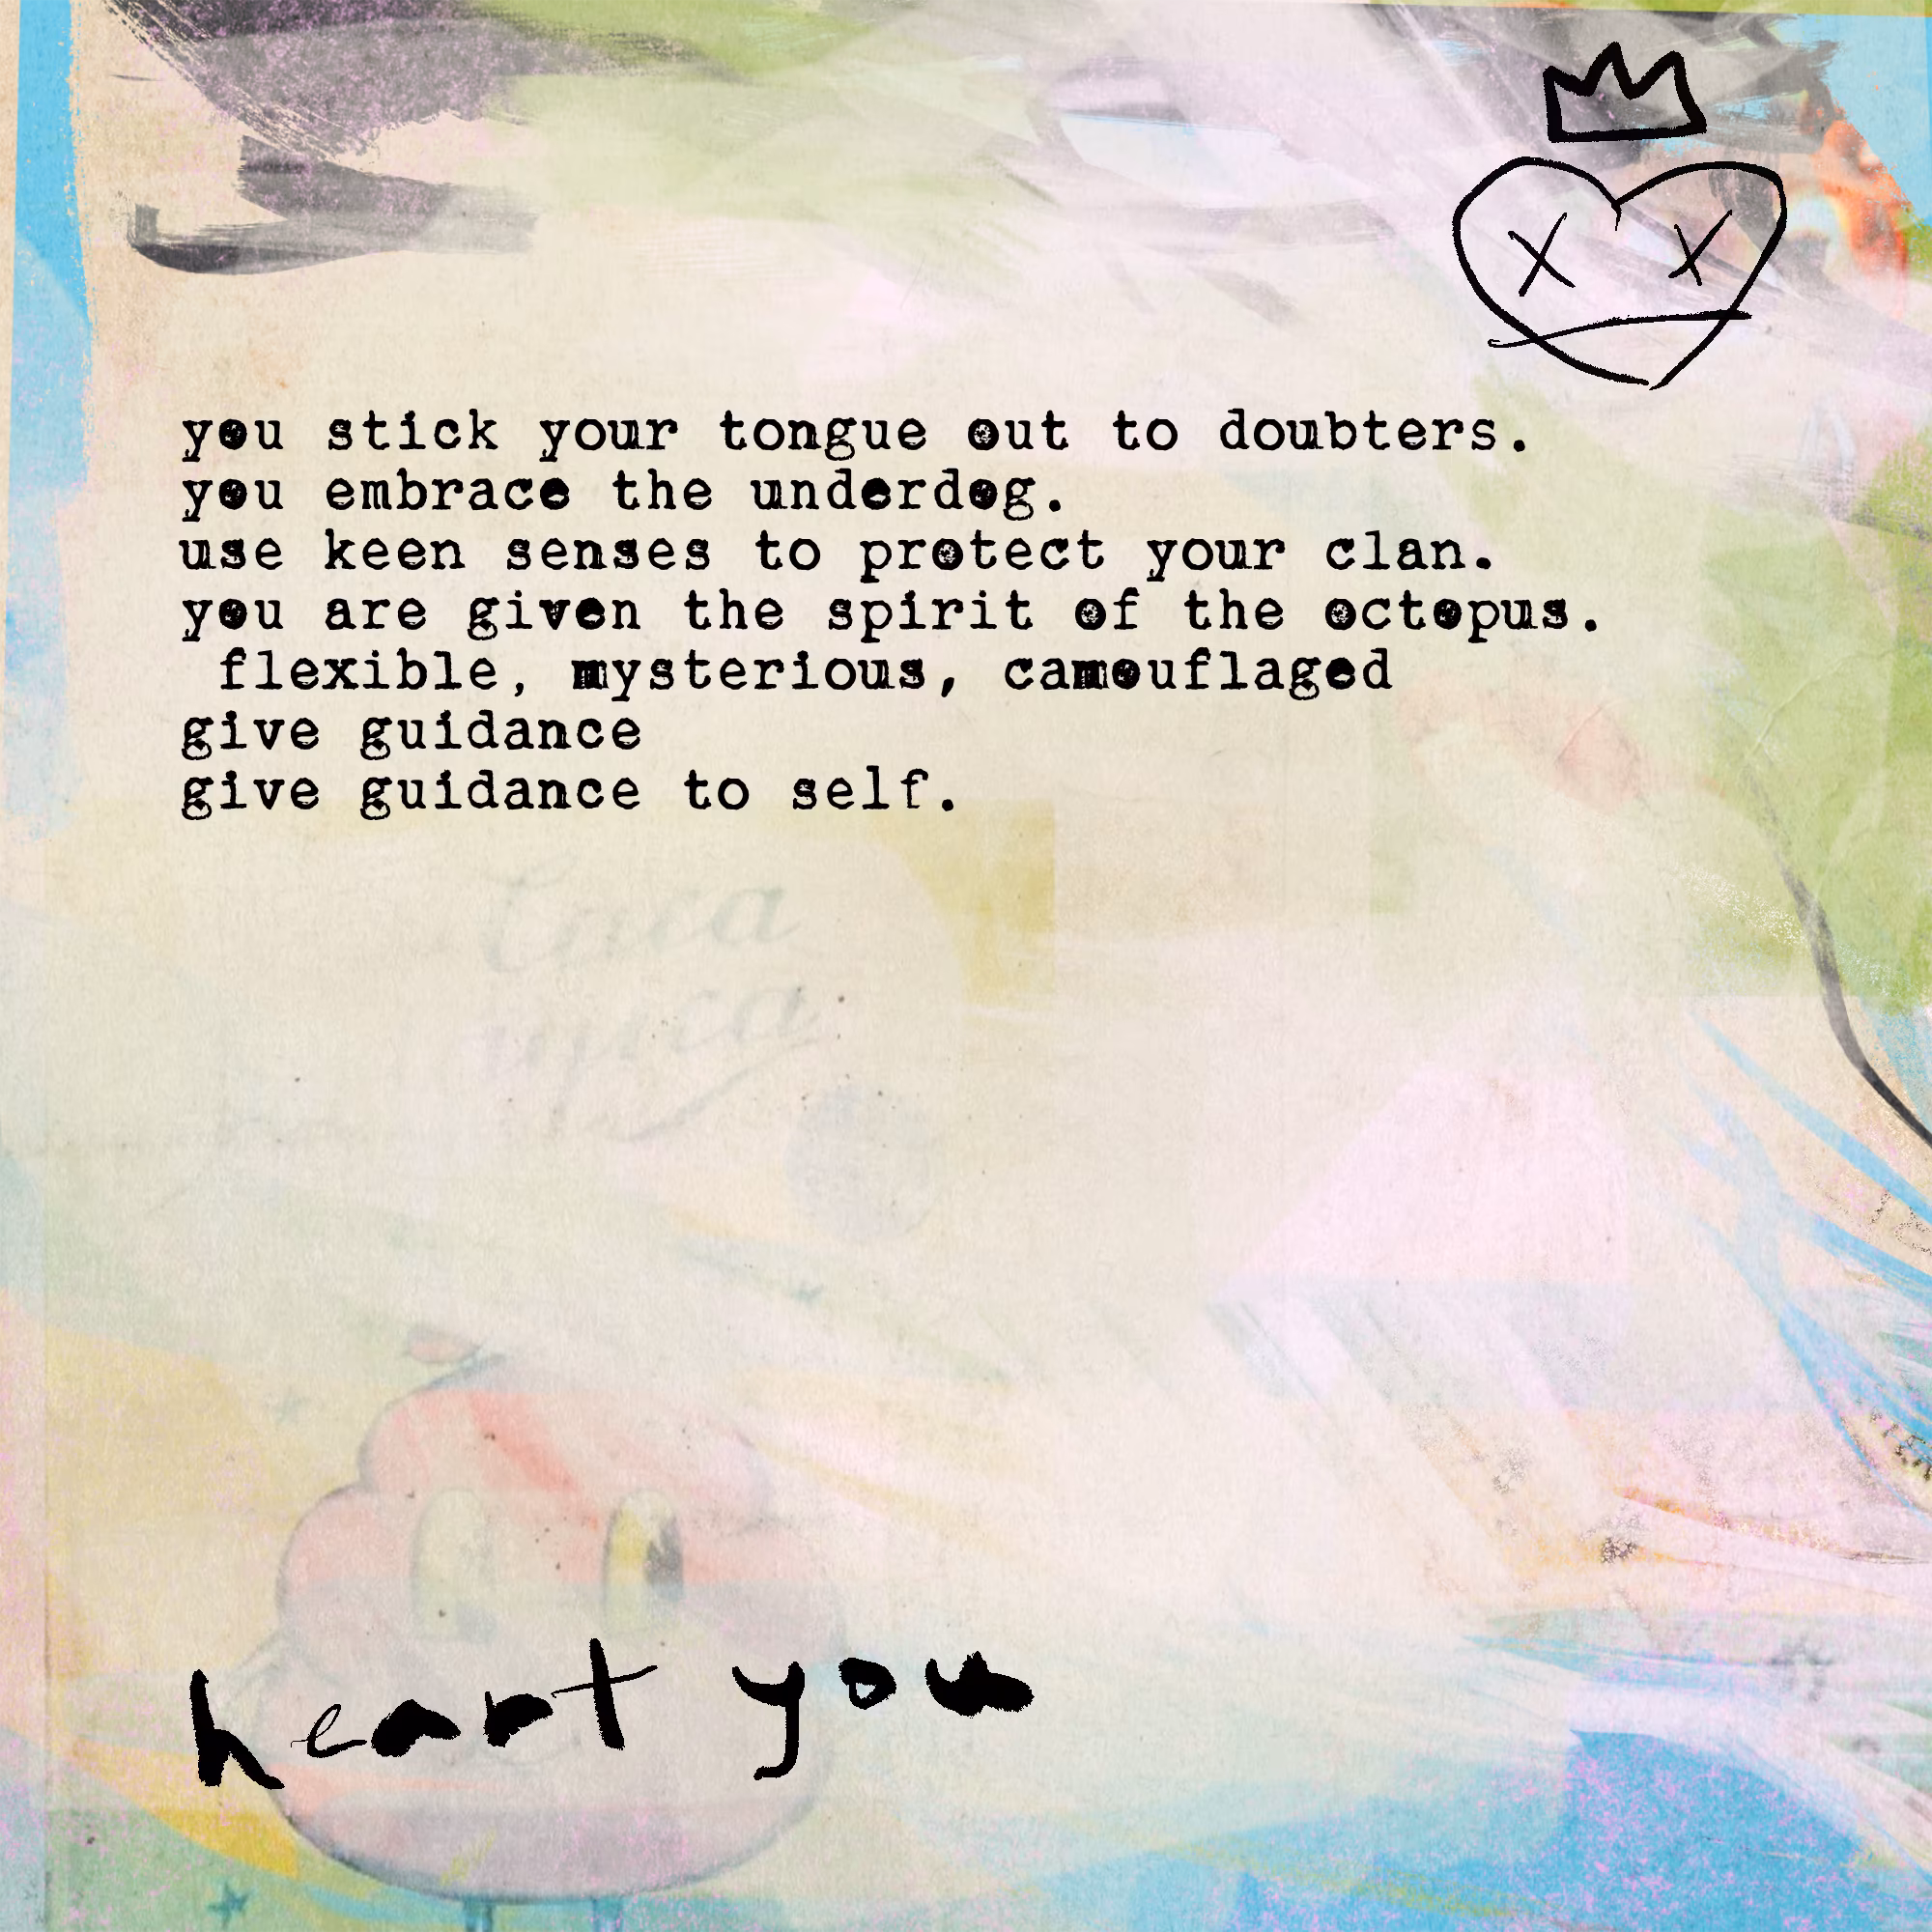 you stick your tongue out to doubters.
you embrace the underdog.
use keen senses to protect your clan.
you are given the spirit of the octopus.
flexible, mysterious, camouflaged
give guidance
give guidance to self.
heart you